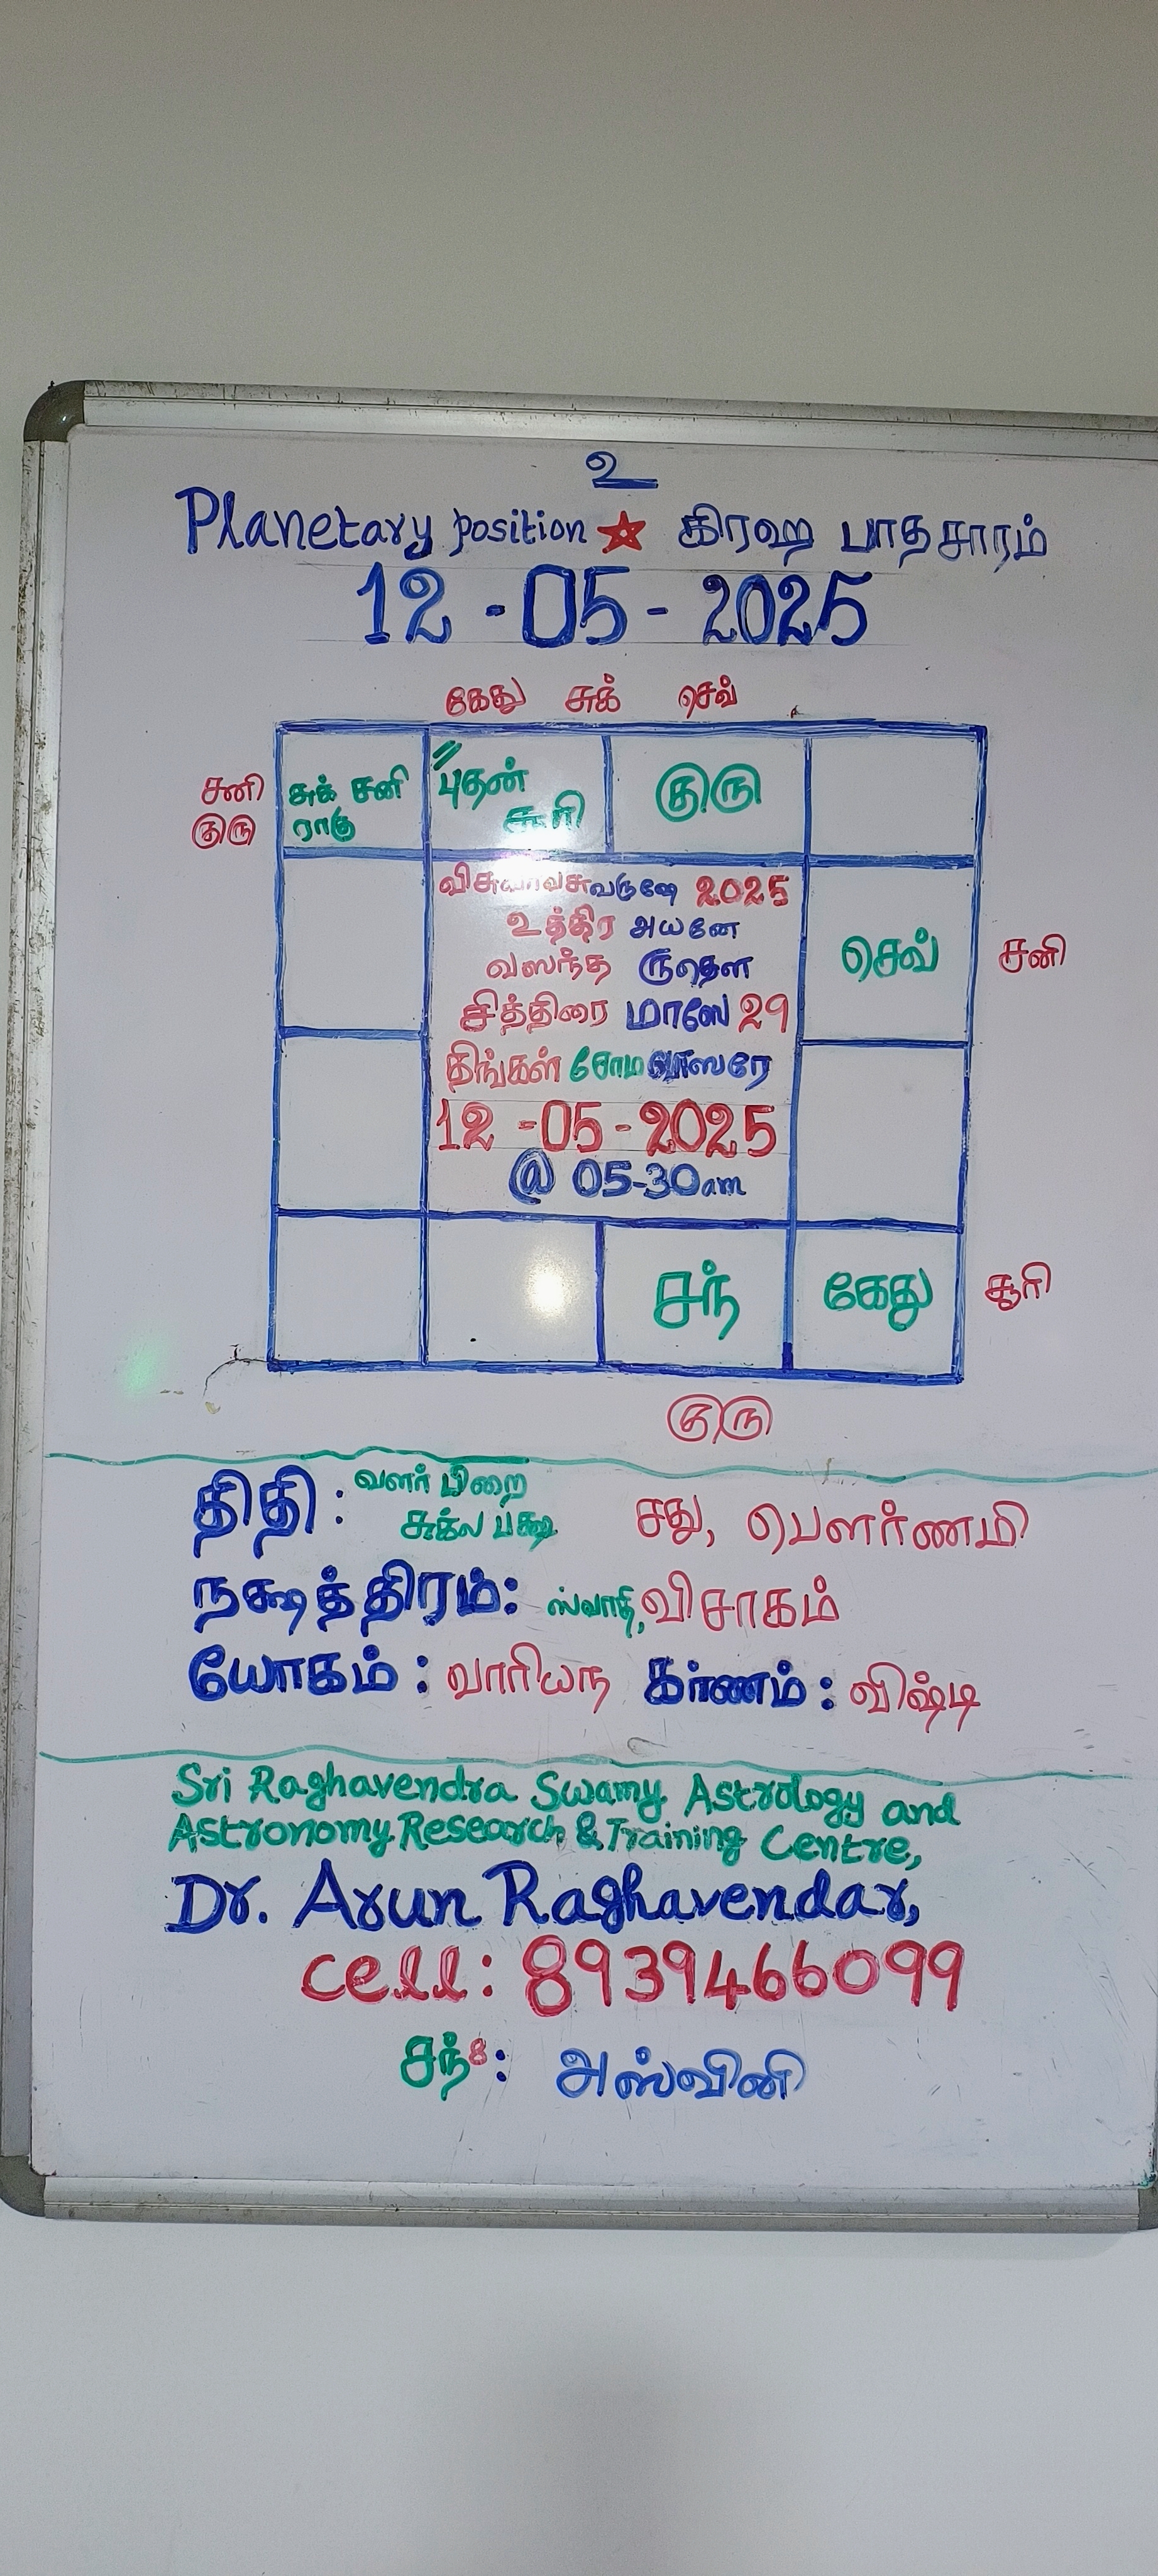 உ
Planetary position ☆ கிரஹ பாதசாரம்
12 -05- 2025
கேது சுக் செவ்
சனி
குரு
சுக் சனி
ராகு
புதன்
சூரி
குரு
விசுவாவசுவருஷே 2025
உத்திர அயனே
வஸந்த ருதௌ
சித்திரை மாஸே 29
திங்கள் சோம வாஸரே
12 -05-2025
@ 05-30am
செவ்
சனி
சந்
கேது
சூரி
குரு
திதி : வளர் பிறை
சுக்ல பக்ஷ சது, பௌர்ணமி
நக்ஷத்திரம்: ஸ்வாதி, விசாகம்
யோகம் : வாரியந கர்ணம் : விஷ்டி
Sri Raghavendra Swamy Astrology and
Astronomy Research & Training Centre,
Dr. Arun Raghavendar,
cell: 8939466099
சந்8: அஸ்வினி